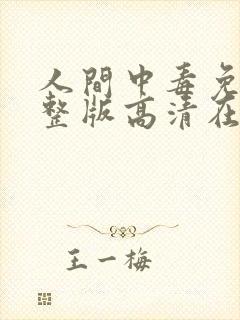 人間中毒免
整版高清在
王一梅